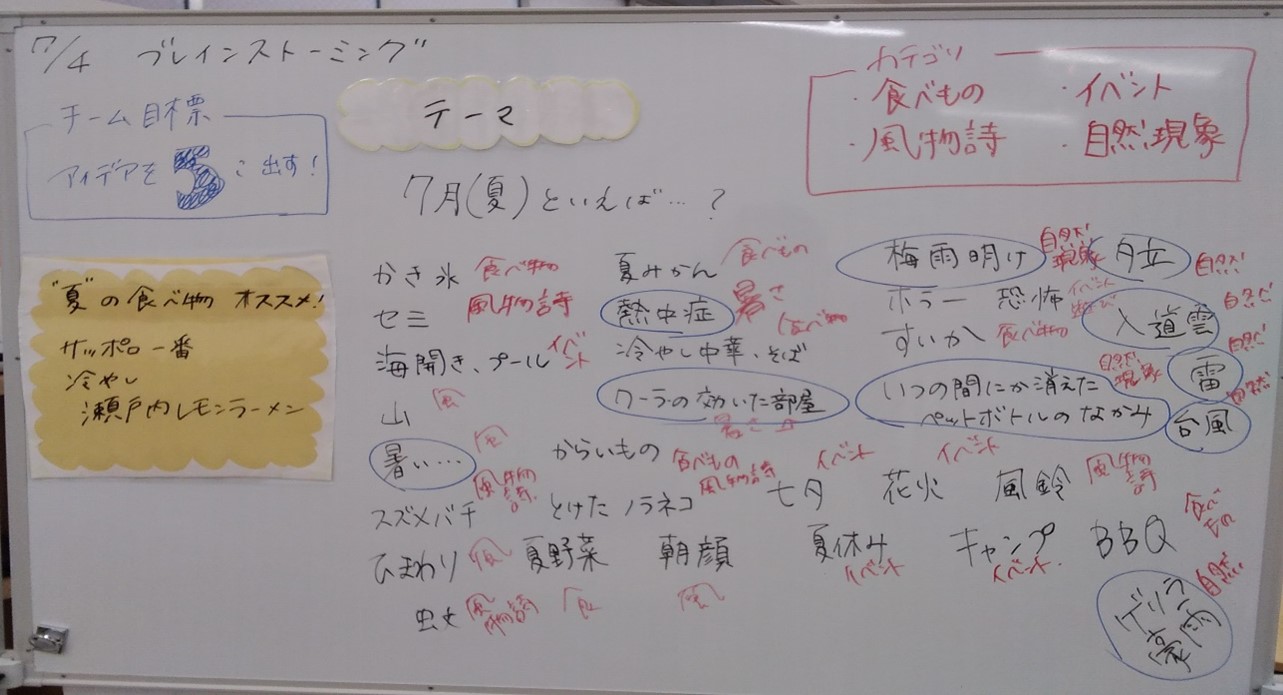 7/4 ブレインストーミング
チーム目標
アイデアを5こ出す!
テーマ
カテゴリ
・食べもの ・イベント
・風物詩 ・自然現象
7月(夏)といえば…?
"夏"の食べ物 オススメ!
サッポロ一番
冷やし
瀬戸内レモンラーメン
かき氷 食べ物
セミ 風物詩
海開き、プール イベント
山 風
暑い… 風
スズメバチ 風物詩
ひまわり 風
虫文 風物詩
夏みかん 食べもの
熱中症 暑さ
冷やし中華、そば 食べ物
クーラの効いた部屋 暑さ
からいもの 食べもの
とけたノラネコ 風物詩
夏野菜 食
朝顔 風
梅雨明け 自然現象
ホラー 恐怖 イベント
すいか 食べ物
いつの間にか消えた
ペットボトルのなかみ 自然現象
夕立 自然
入道雲 自然
雷 自然
台風 自然
七夕 イベント
花火 イベント
風鈴 風物詩
夏休み イベント
キャンプ イベント
BBQ 食べもの
ゲリラ
豪雨 自然